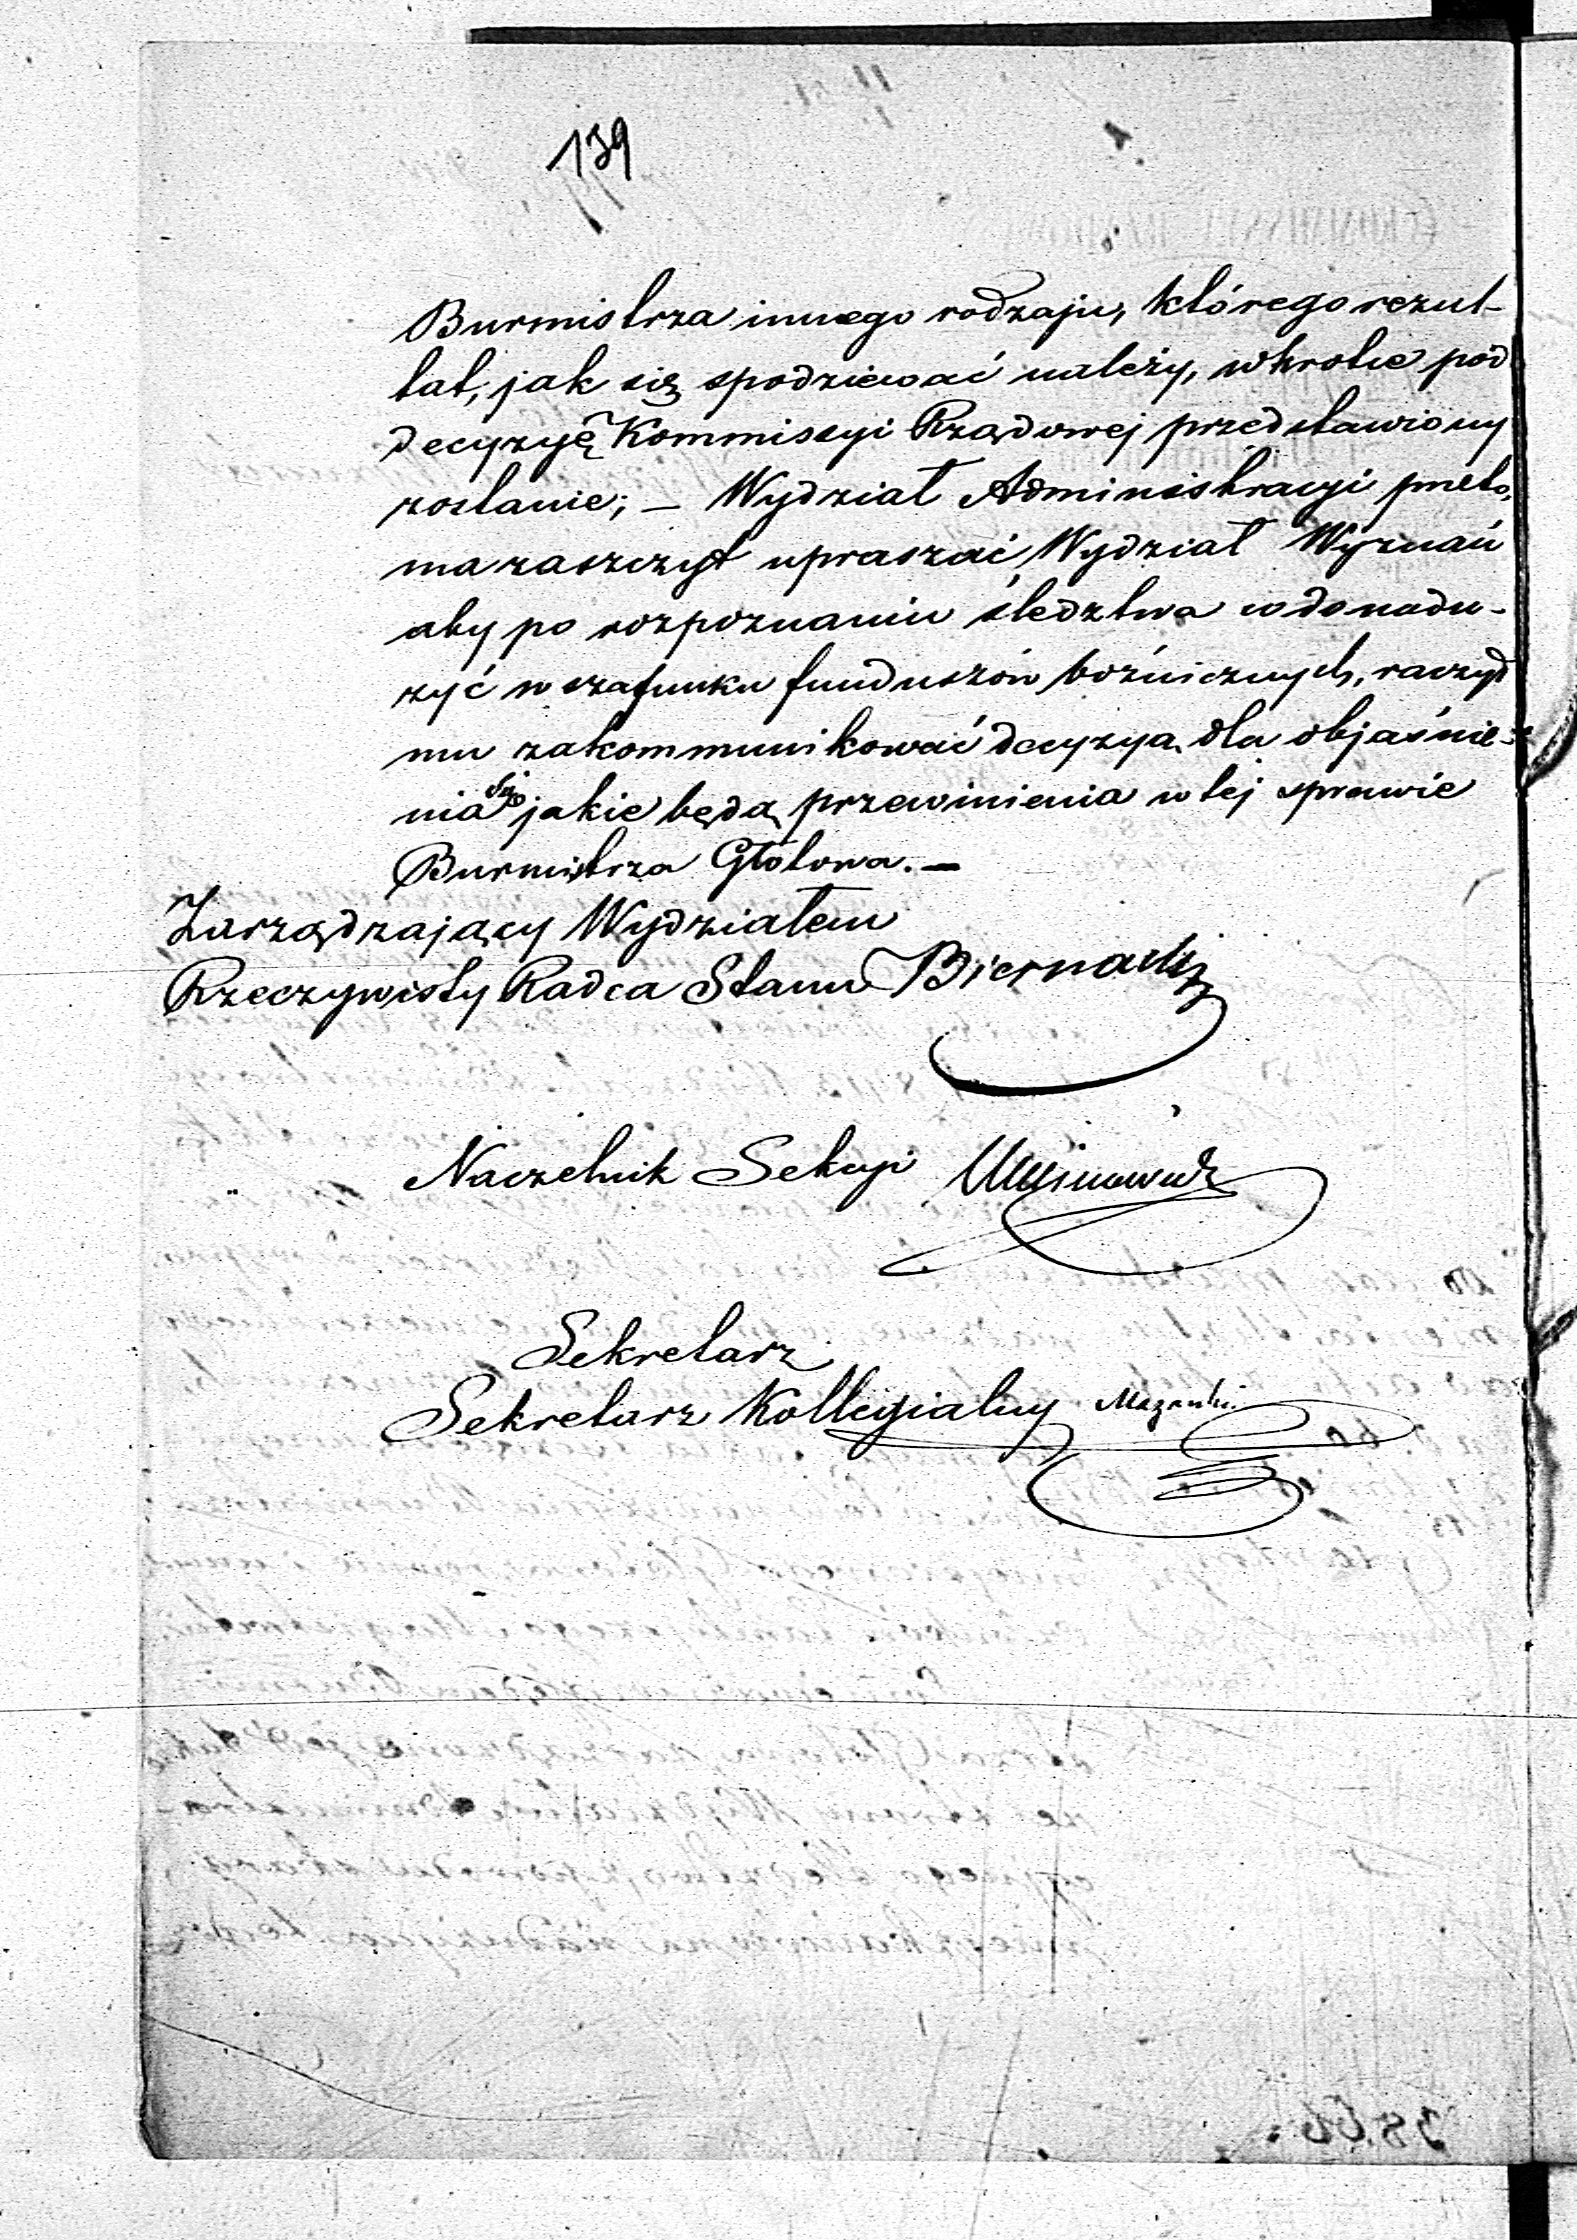 139
Burmistrza innego rodzaju, którego rezul-
tat, jak się spodziewać należy, wkrotce pod
decyzyę Kommissyi Rządowej przedstawiony
zostanie; — Wydział Administracyi przeto,
ma zaszczyt upraszać Wydział Wyznań
aby po rozpoznaniu śledztwa co do nadu-
żyć w szafunku funduszów bożniczych, raczył
mu zakommunikować decyzyą dla objaśnie-
nia się jakie będą przewinienia w tej sprawie
Burmistrza Głotowa. —
Zarządzający Wydziałem
Rzeczywisty Radca Stanu Biernacki
Naczelnik Sekcyi
Sekretarz
Sekretarz Kollegialny